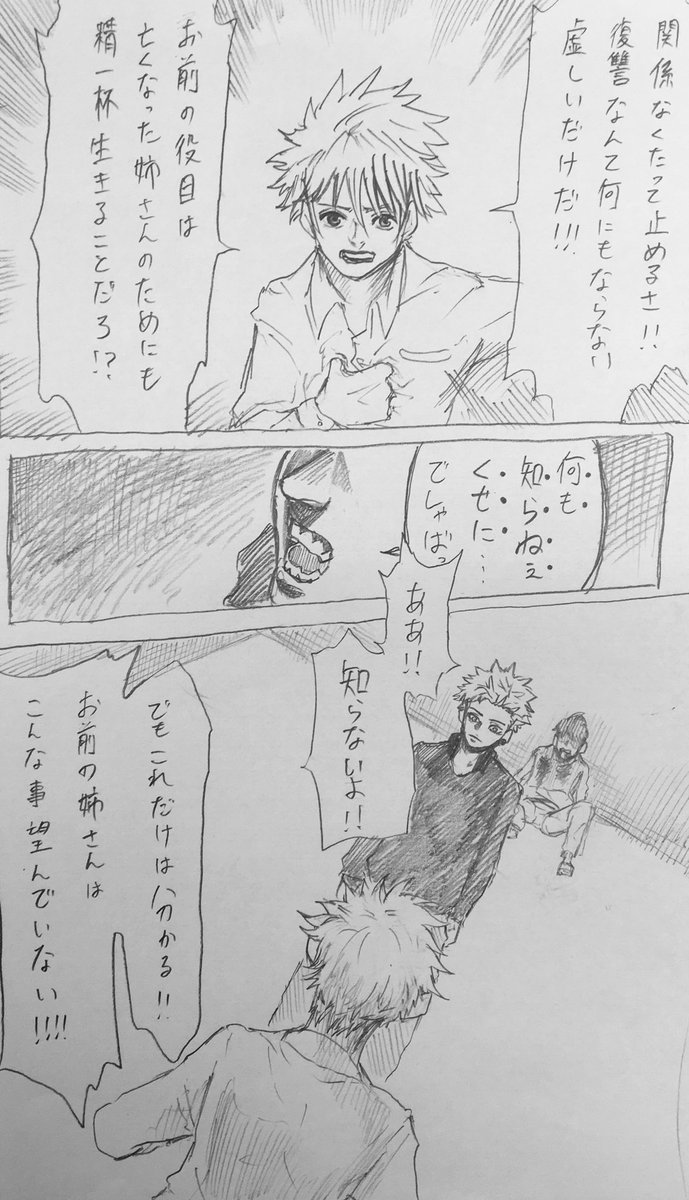 関係なくたって止めるさ!!
復讐なんて何にもならない
虚しいだけだ!!!
お前の役目は
亡くなった姉さんのためにも
精一杯生きることだろ!?
何も
知らねぇ
くせに…
でしゃばっ
ああ!!
知らないよ!!
でもこれだけは分かる!!
お前の姉さんは
こんな事望んでいない!!!!